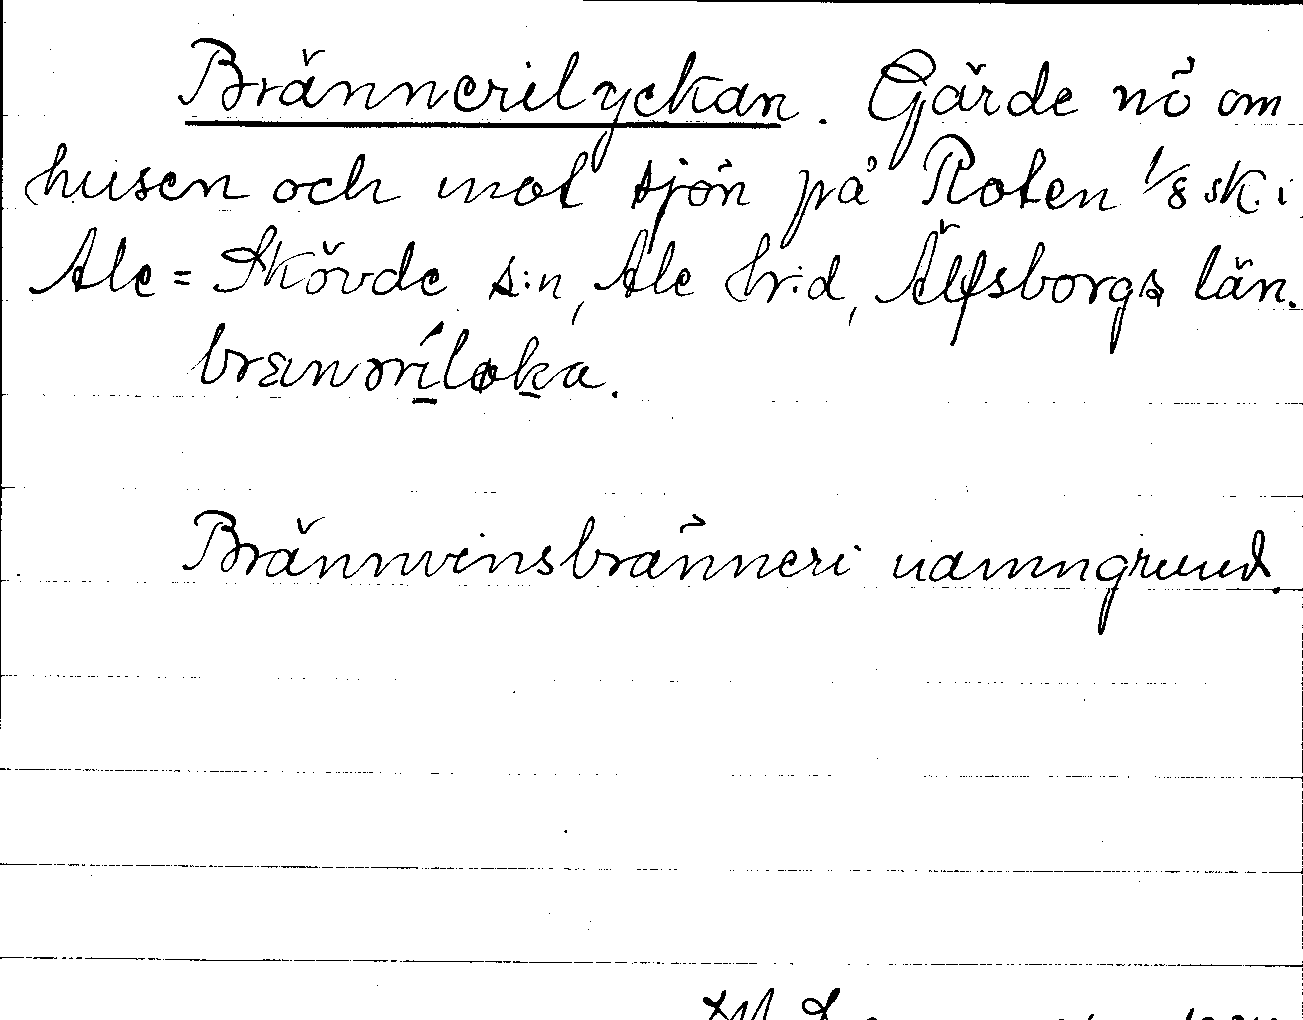 Brännerilyckan. Gärde nö om
husen och mot sjön på Roten 1/8 sk. i
Ale=Skövde s:n, Ale hr:d, Älfsborgs län.
Brännvinsbränneri namngrund.